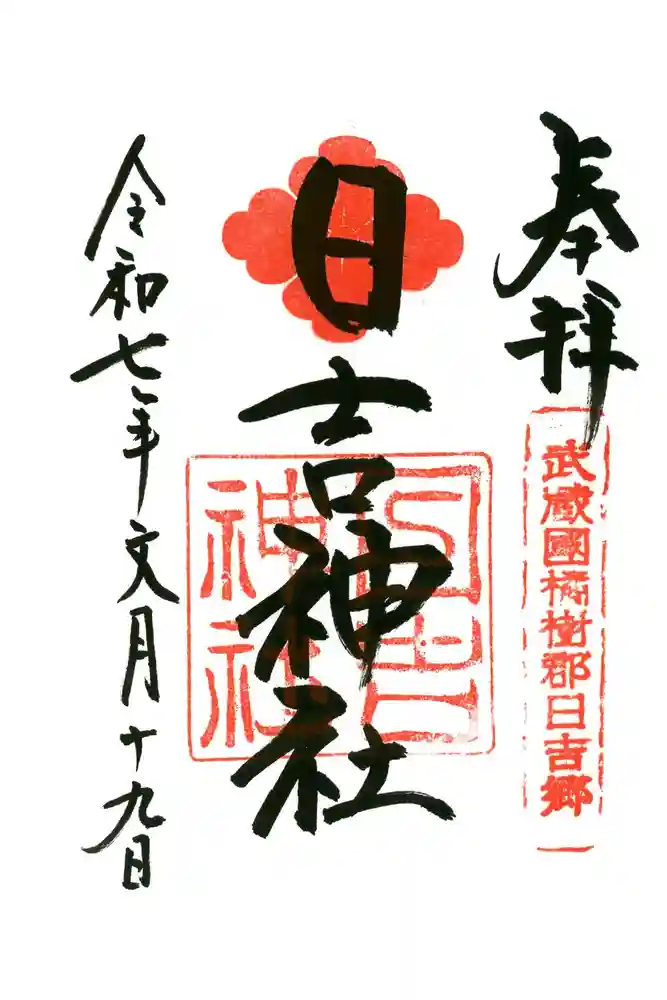 奉拝
武蔵國橘樹郡日吉郷
日吉神社
日吉神社
令和七年文月十九日